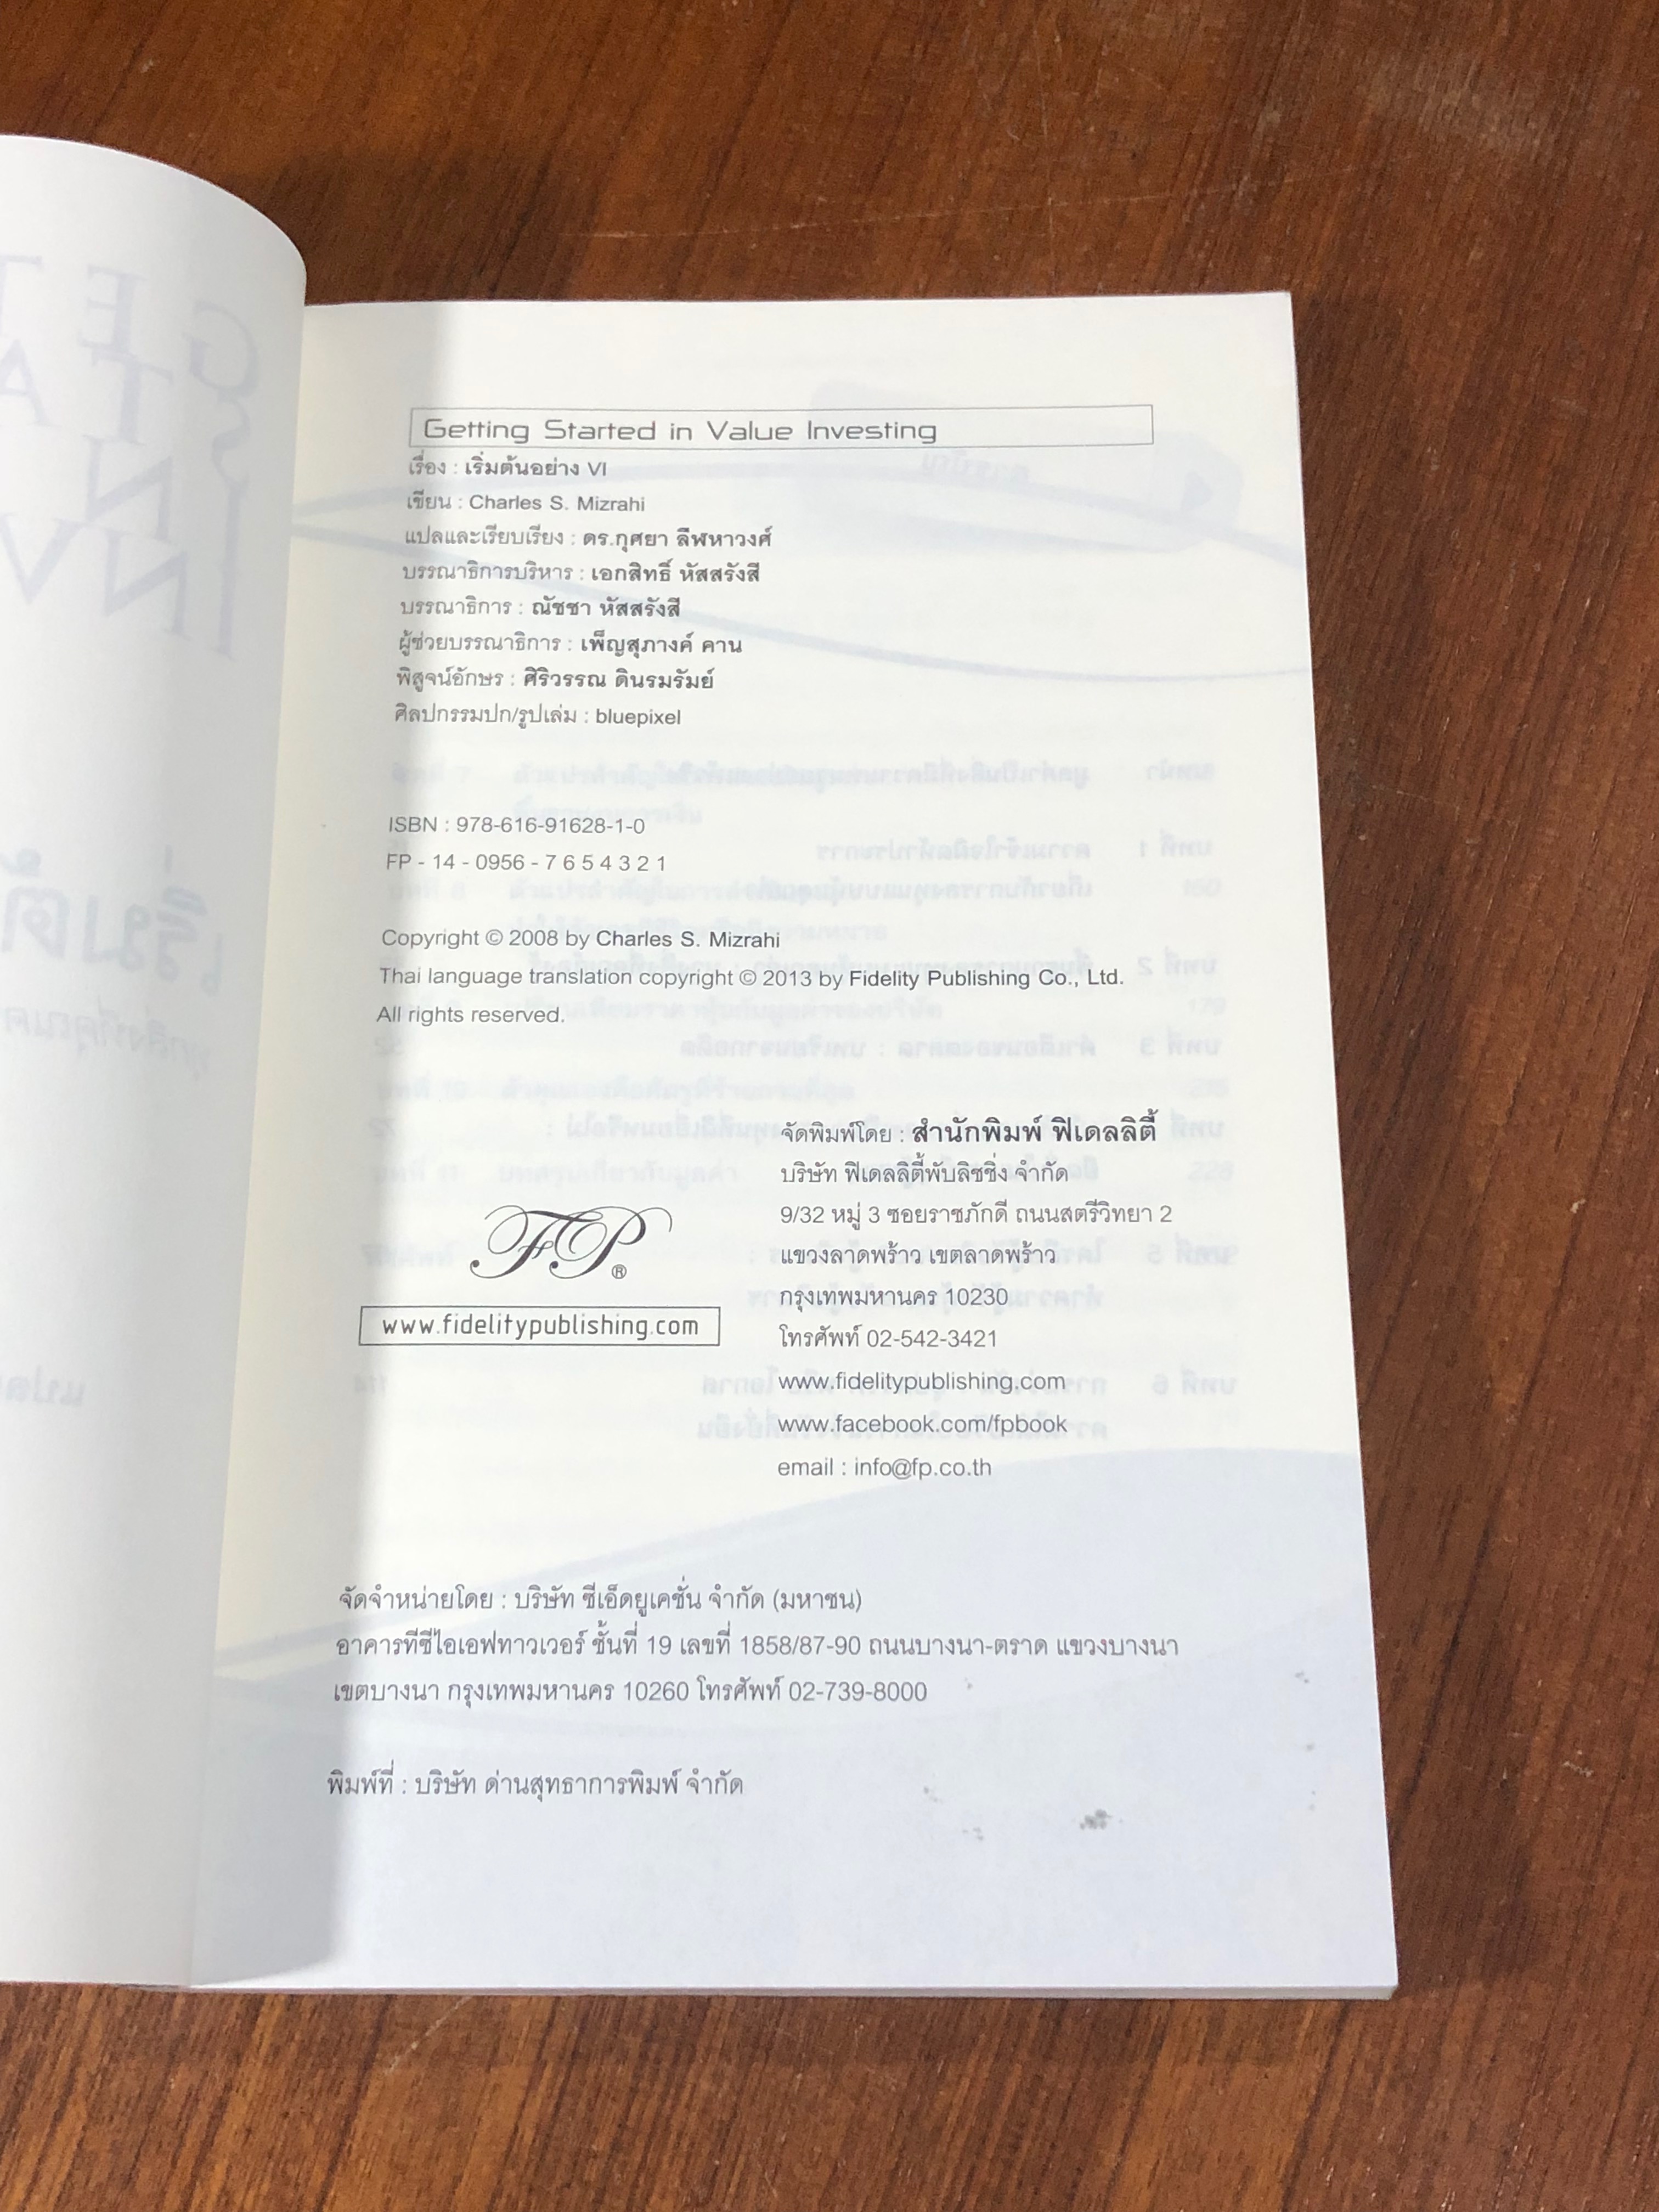 Getting Started in Value Investing
เรื่อง : เริ่มต้นอย่าง VI
เขียน : Charles S. Mizrahi
แปลและเรียบเรียง : ดร.กุศยา ลีฬหาวงศ์
บรรณาธิการบริหาร : เอกสิทธิ์ หัสสรังสี
บรรณาธิการ : ณัชชา หัสสรังสี
ผู้ช่วยบรรณาธิการ : เพ็ญสุภางค์ คาน
พิสูจน์อักษร : ศิริวรรณ ดินรมรัมย์
ศิลปกรรมปก/รูปเล่ม : bluepixel
ISBN : 978-616-91628-1-0
FP - 14 - 0956 - 7 6 5 4 3 2 1
Copyright © 2008 by Charles S. Mizrahi
Thai language translation copyright © 2013 by Fidelity Publishing Co., Ltd.
All rights reserved.
FP®
www.fidelitypublishing.com
จัดพิมพ์โดย : สำนักพิมพ์ ฟิเดลลิตี้
บริษัท ฟิเดลลิตี้พับลิชชิ่ง จำกัด
9/32 หมู่ 3 ซอยราชภักดี ถนนสตรีวิทยา 2
แขวงลาดพร้าว เขตลาดพร้าว
กรุงเทพมหานคร 10230
โทรศัพท์ 02-542-3421
www.fidelitypublishing.com
www.facebook.com/fpbook
email : info@fp.co.th
จัดจำหน่ายโดย : บริษัท ซีเอ็ดยูเคชั่น จำกัด (มหาชน)
อาคารทีซีไอเอฟทาวเวอร์ ชั้นที่ 19 เลขที่ 1858/87-90 ถนนบางนา-ตราด แขวงบางนา
เขตบางนา กรุงเทพมหานคร 10260 โทรศัพท์ 02-739-8000
พิมพ์ที่ : บริษัท ด่านสุทธาการพิมพ์ จำกัด